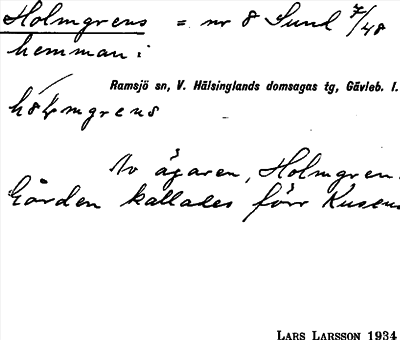 Holmgrens = nr 8 Sund 7/48
hemman:
Ramsjö sn, V. Hälsinglands domsagas tg, Gävleb. l.
Av ägaren, Holmgren.
Gården kallades förr Kusens
LARS LARSSON 1934